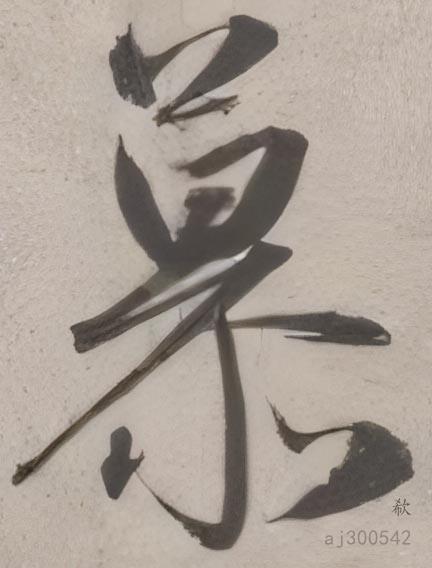 慕
欷
aj300542